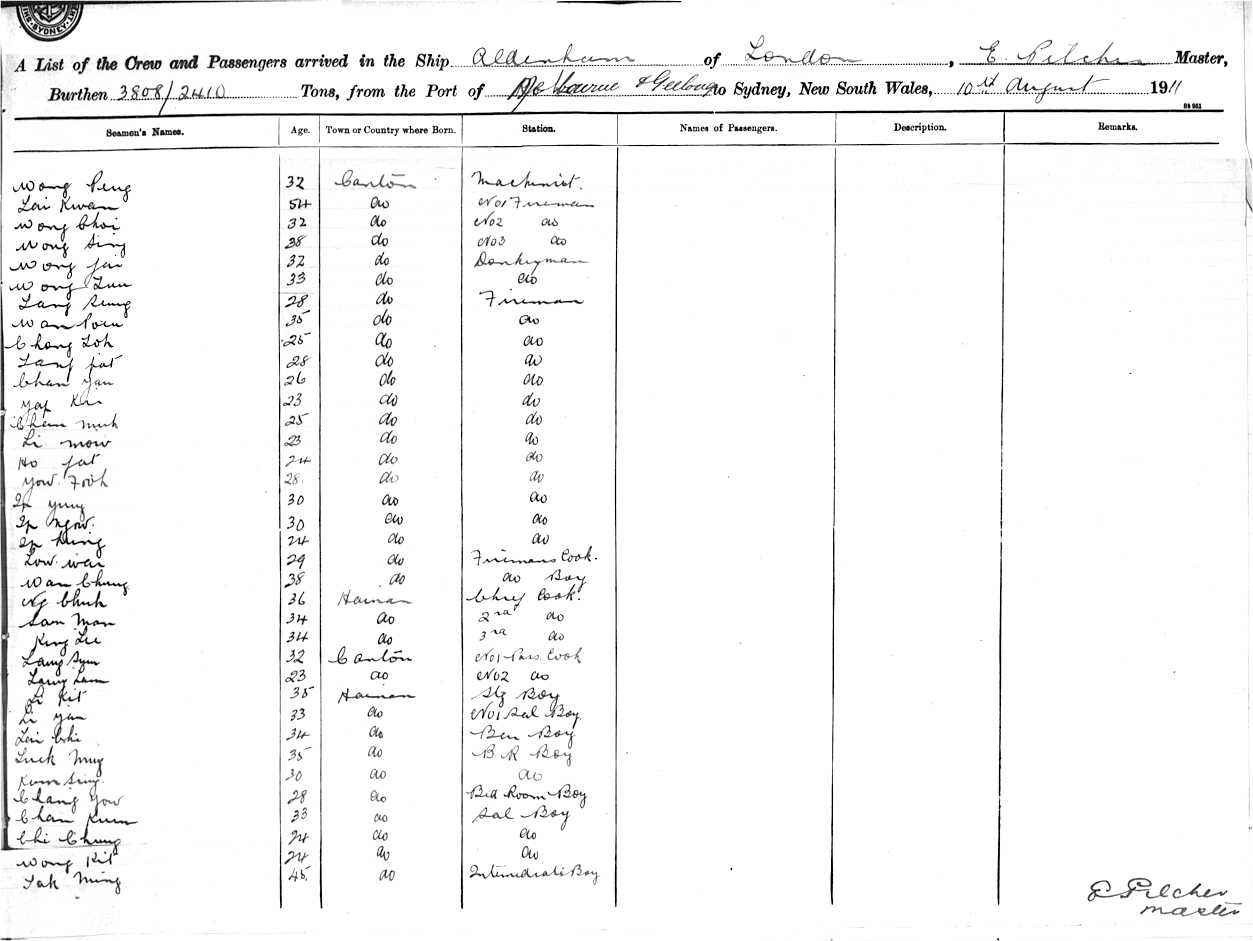 SYDNEY
A List of the Crew and Passengers arrived in the Ship Aldenham of London, E. Pilcher Master,
Burthen 3808/2410 Tons, from the Port of Melbourne & Geelong to Sydney, New South Wales, 10th August 1911
Seamen's Names. Age. Town or Country where Born. Station. Names of Passengers. Description. Remarks.
Wong Peng 32 Canton Machinist.
Lai Kwan 54 do No1 Fireman
Wong Choi 32 do No2 do
Wong Sing 38 do No3 do
Wong Jai 32 do Donkeyman
Wong Lun 33 do do
Lang Seung 28 do Fireman
Wan 35 do do
Chong Loh 25 do do
Lang Fat 28 do do
Chan Yau 26 do do
Yap 23 do do
25 do do
Li Mow 23 do do
Ho Fat 24 do do
Yow Fook 28 do do
Ip Yung 30 do do
Ip Ngow 30 do do
Ip 24 do do
Low Wai 29 do Firemans Cook.
Wan Chung 38 do do Boy
Ng Chuk 36 Hainan Chief Cook.
Sam Man 34 do 2nd do
King Lee 34 do 3rd do
Lang Sum 32 Canton No1 Pass. Cook
Lang Lam 23 do No2 do
Li Kit 35 Hainan Stg Boy
Li Yan 33 do No1 Sal Boy
Lai Chi 34 do Boy
Luck 35 do B R Boy
Kum Sing 30 do do
Chang Yow 28 do Bed Room Boy
Chan Kum 33 do Sal Boy
Chi Chung 24 do do
Wong Kit 24 do do
Tak Ming 45 do Intermediate Boy
E Pilcher
Master